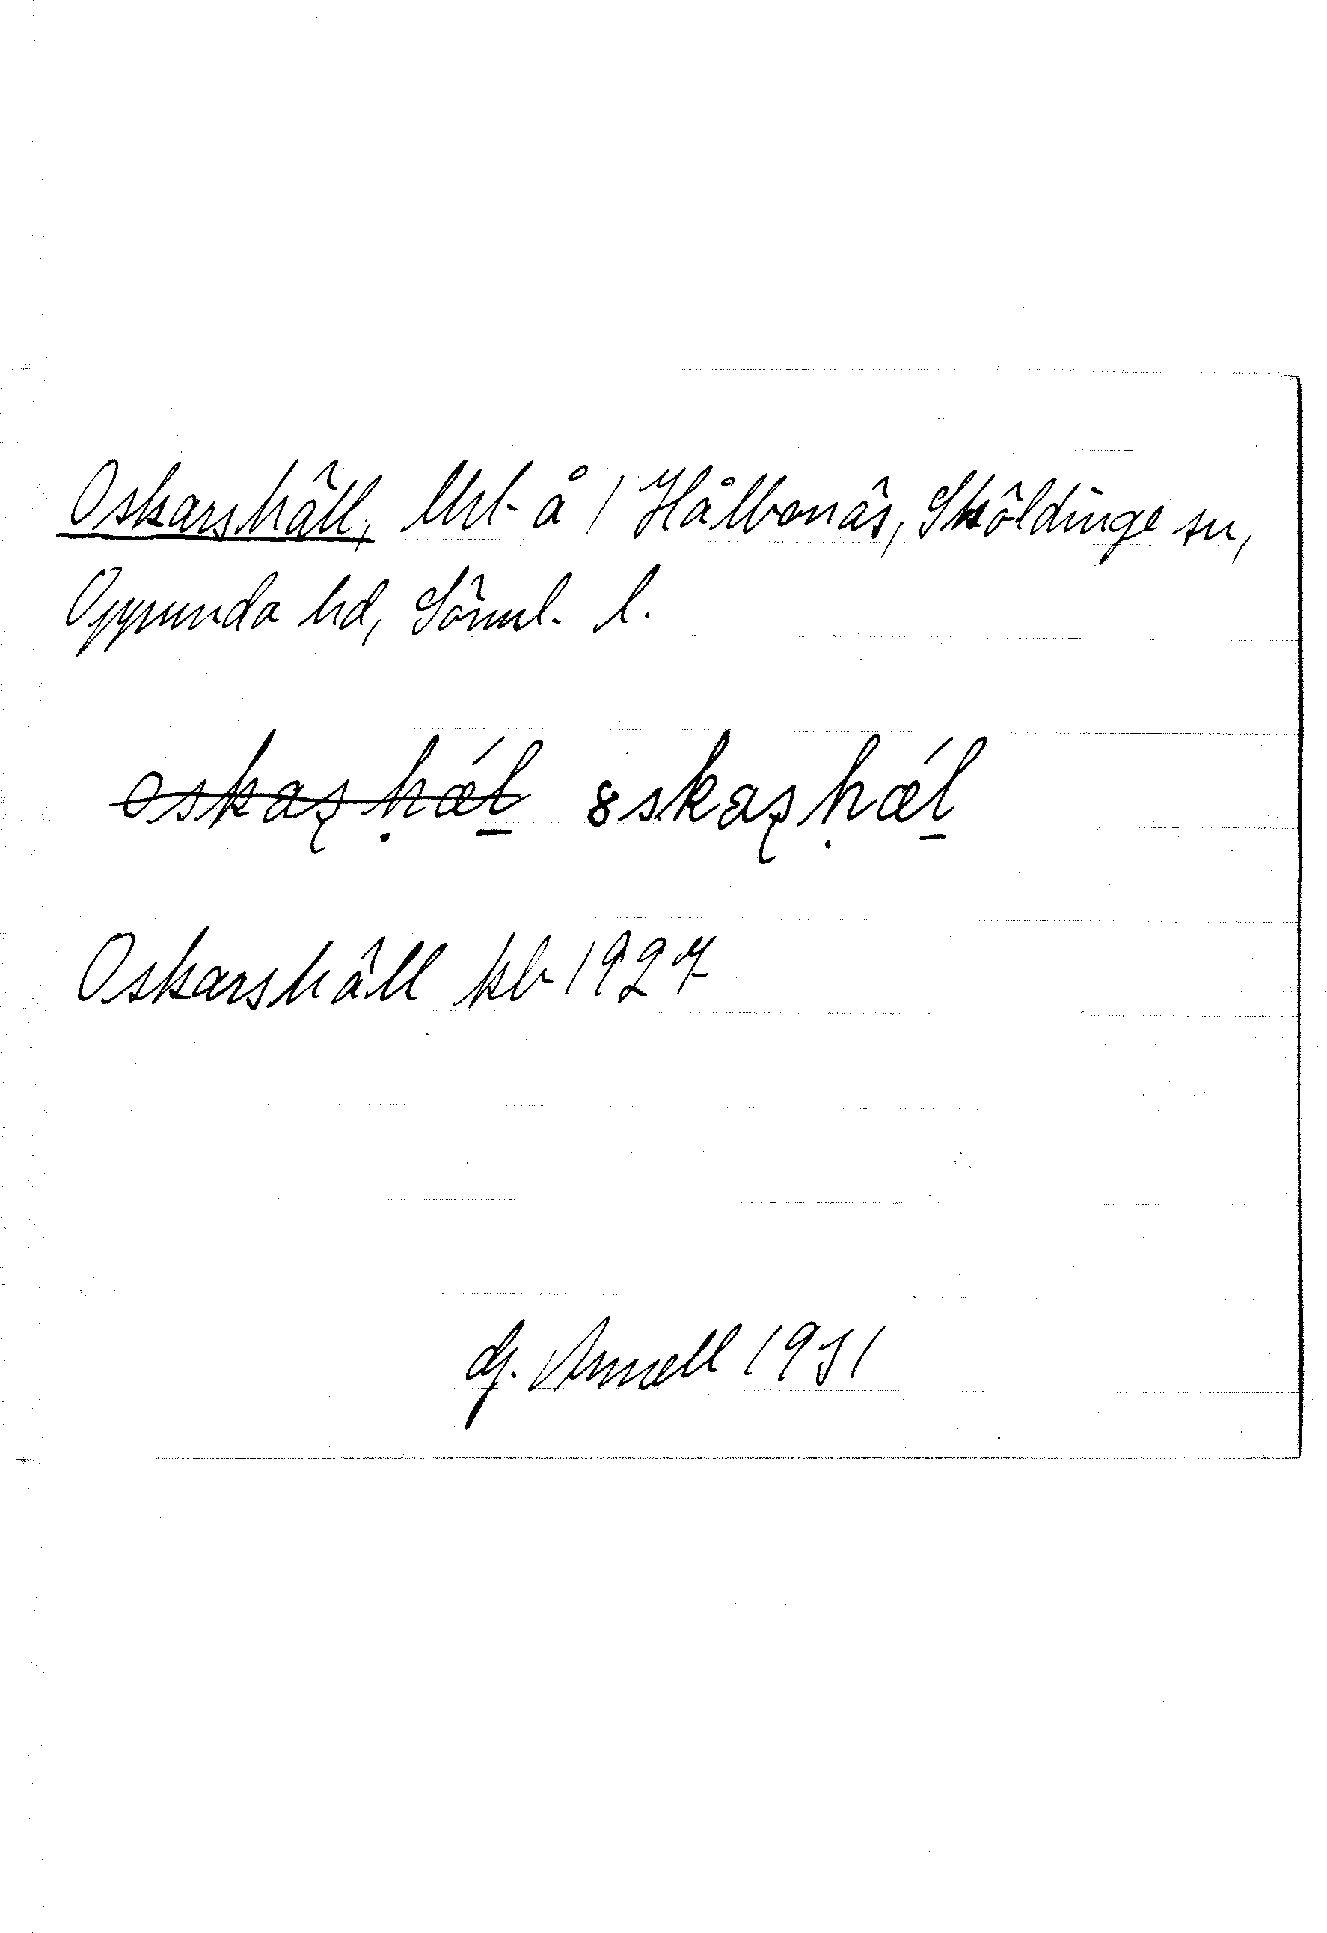 Oskarshäll, Urt å 1 Hålbonäs, Sköldinge sn,
Oppunda hd, Sörml. l.
oskaʂḥæ´l̲ 8skaʂḥæ´l̲
Oskarshäll kb 1927
G. Annell 1931